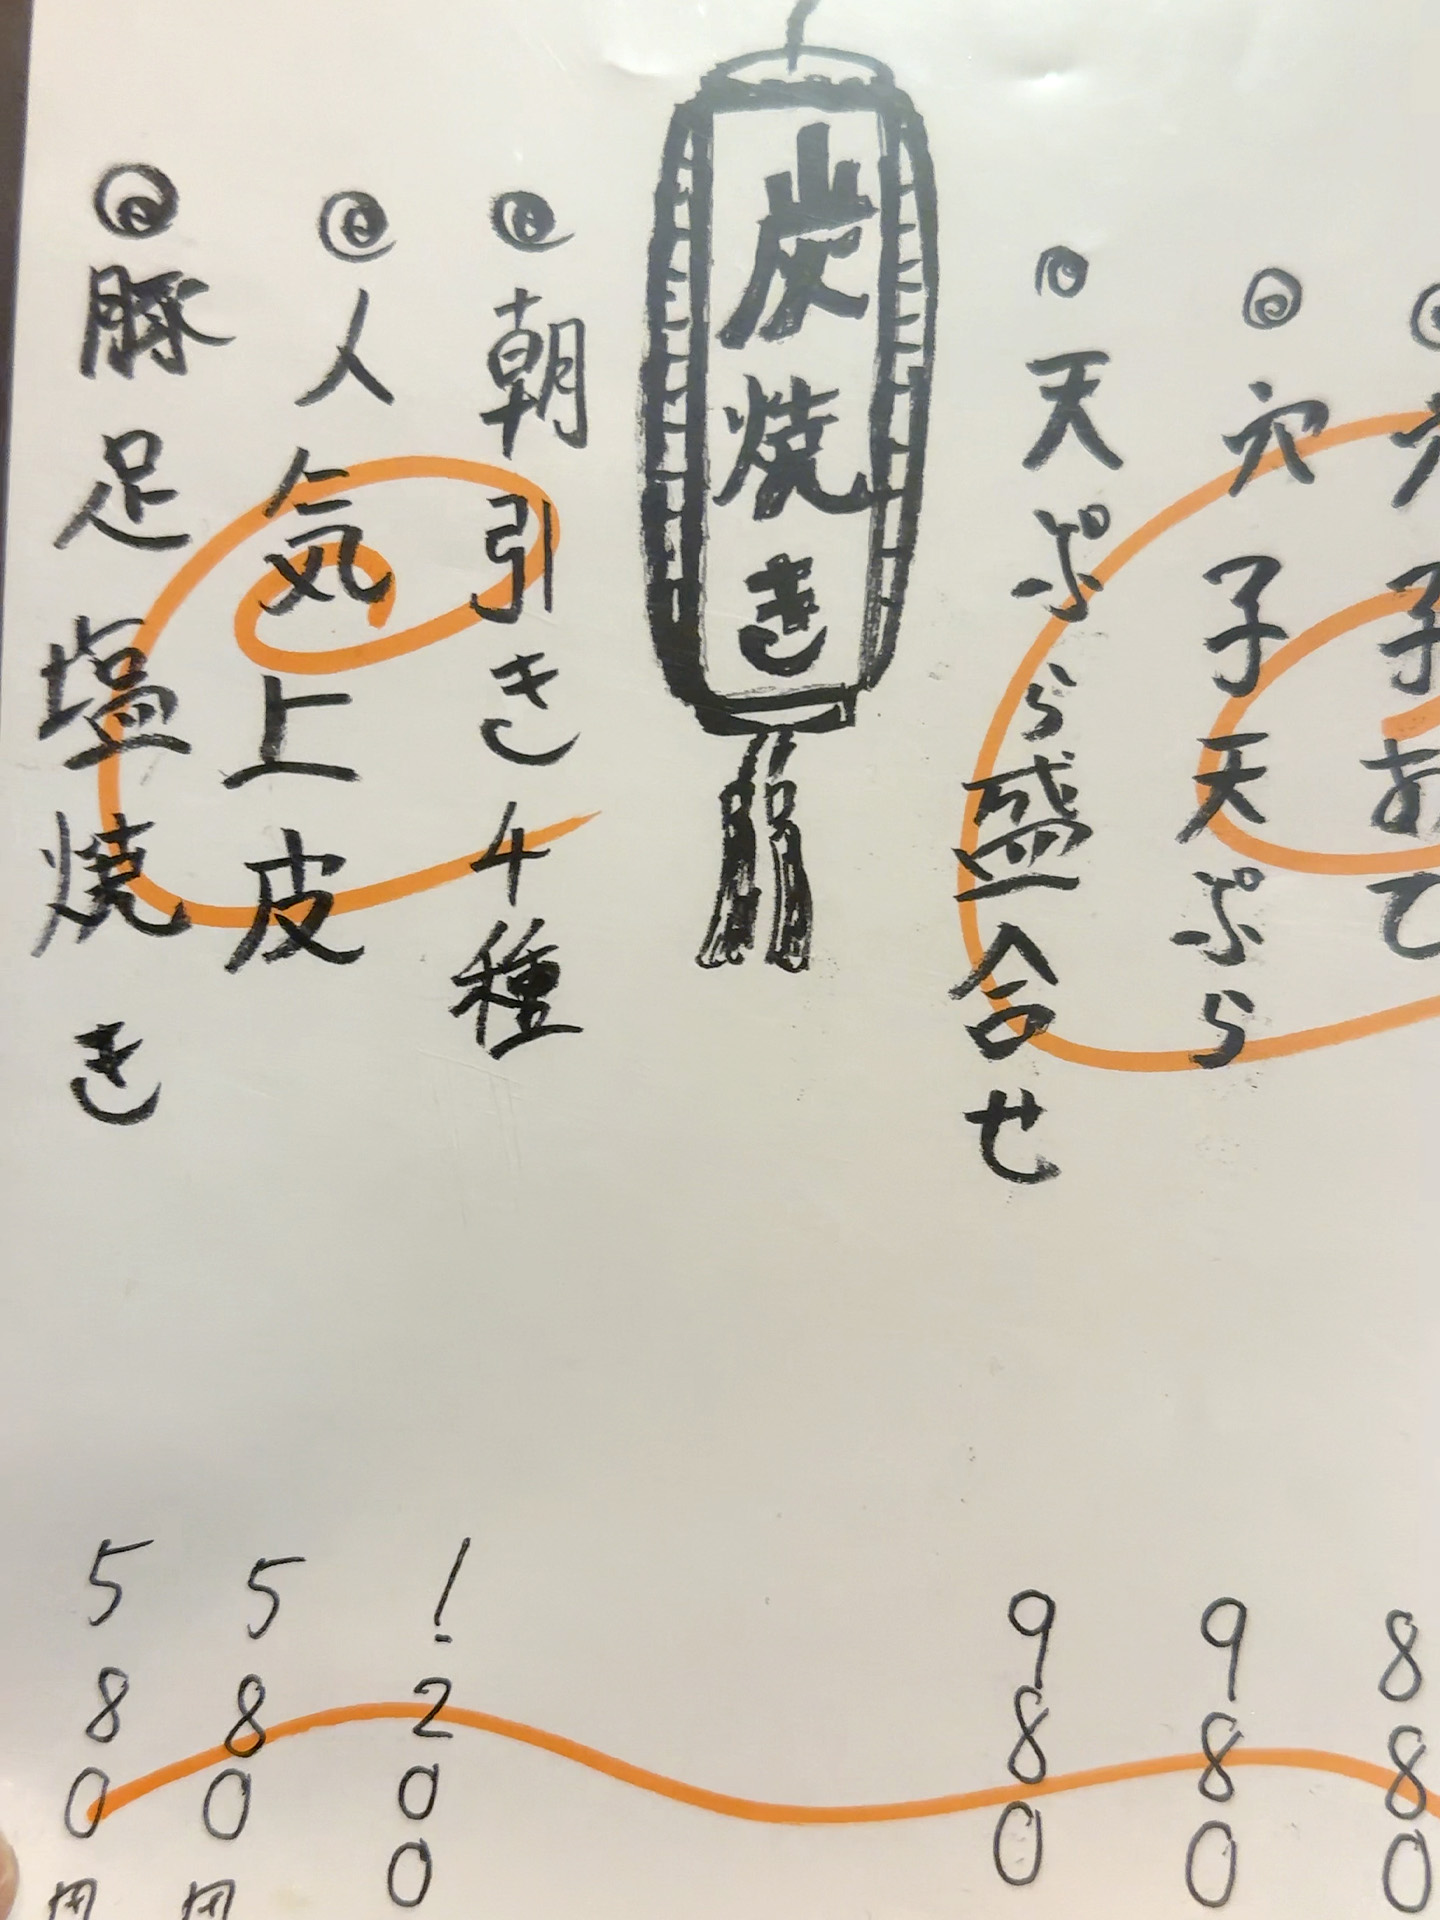 穴子おて
880
穴子天ぷら
980
天ぷら盛合せ
980
炭焼き
朝引き4種
1200
人気上皮
580円
豚足塩焼き
580円